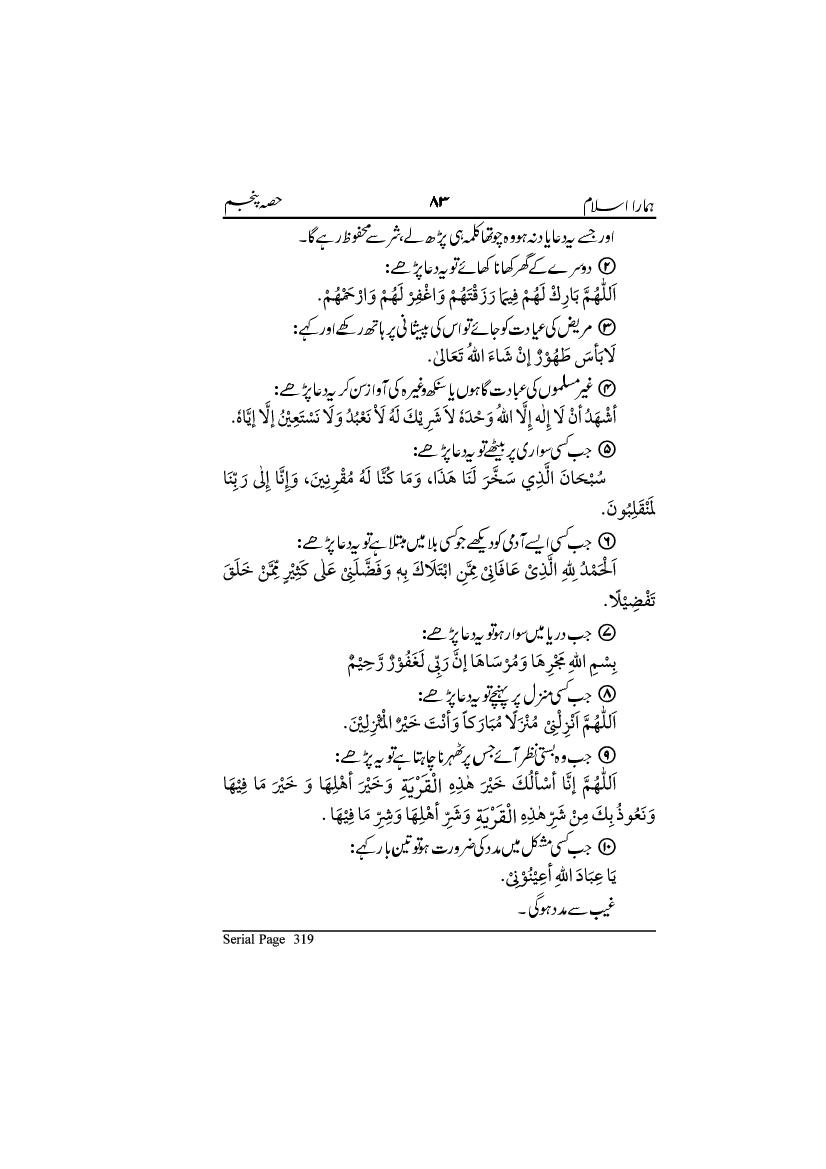 ہمارا اسلام ۸۳ حصہ پنجم
اور جسے یہ دعا یاد نہ ہو وہ چوتھا کلمہ ہی پڑھ لے، شر سے محفوظ رہے گا۔
② دوسرے کے گھر کھانا کھائے تو یہ دعا پڑھے:
اَللّٰهُمَّ بَارِكْ لَهُمْ فِيمَا رَزَقْتَهُمْ وَاغْفِرْ لَهُمْ وَارْحَمْهُمْ.
③ مریض کی عیادت کو جائے تو اس کی پیشانی پر ہاتھ رکھے اور کہے:
لَا بَأسَ طَهُوْرٌ إنْ شَاءَ اللهُ تَعَالىٰ.
④ غیر مسلموں کی عبادت گاہوں یا سنکھ وغیرہ کی آواز سن کر یہ دعا پڑھے:
أشْهَدُ أنْ لَا إلٰه إلَّا اللهُ وَحْدَهٗ لاَ شَرِيْكَ لَهٗ لَاْ نَعْبُدُ وَلَا نَسْتَعِيْنُ إلَّا إيَّاهُ.
⑤ جب کسی سواری پر بیٹھے تو یہ دعا پڑھے:
سُبْحَانَ الَّذِي سَخَّرَ لَنَا هَذَا، وَمَا كُنَّا لَهُ مُقْرِنِينَ، وَإِنَّا إِلٰى رَبِّنَا
لَمُنْقَلِبُونَ.
⑥ جب کسی ایسے آدمی کو دیکھے جو کسی بلا میں مبتلا ہے تو یہ دعا پڑھے:
اَلْحَمْدُ لِلّٰهِ الَّذِىْ عَافَانِىْ مِمَّنِ ابْتَلَاكَ بِهٖ وَفَضَّلَنِىْ عَلٰى كَثِيْرٍ مِّمَّنْ خَلَقَ
تَفْضِيْلًا.
⑦ جب دریا میں سوار ہو تو یہ دعا پڑھے:
بِسْمِ اللهِ مَجْرٖهَا وَمُرْسَاهَا إنَّ رَبِّى لَغَفُوْرٌ رَّحِيْمٌ
⑧ جب کسی منزل پر پہنچے تو یہ دعا پڑھے:
اَللّٰهُمَّ اَنْزِلْنِىْ مُنْزَلًا مُبَارَكاً وَأنْتَ خَيْرُ الْمُنْزِلِيْنَ.
⑨ جب وہ بستی نظر آئے جس پر ٹھہرنا چاہتا ہے تو یہ پڑھے:
اَللّٰهُمَّ إنَّا أسْألُكَ خَيْرَ هٰذِهِ الْقَرْيَةِ وَخَيْرَ أهْلِهَا وَ خَيْرَ مَا فِيْهَا
وَنَعُوذُ بِكَ مِنْ شَرِّ هٰذِهِ الْقَرْيَةِ وَشَرِّ أهْلِهَا وَشَرِّ مَا فِيْهَا .
⑩ جب کسی مشکل میں مدد کی ضرورت ہو تو تین بار کہے:
يَا عِبَادَ اللهِ أعِيْنُوْنِىْ.
غیب سے مدد ہوگی۔
Serial Page 319